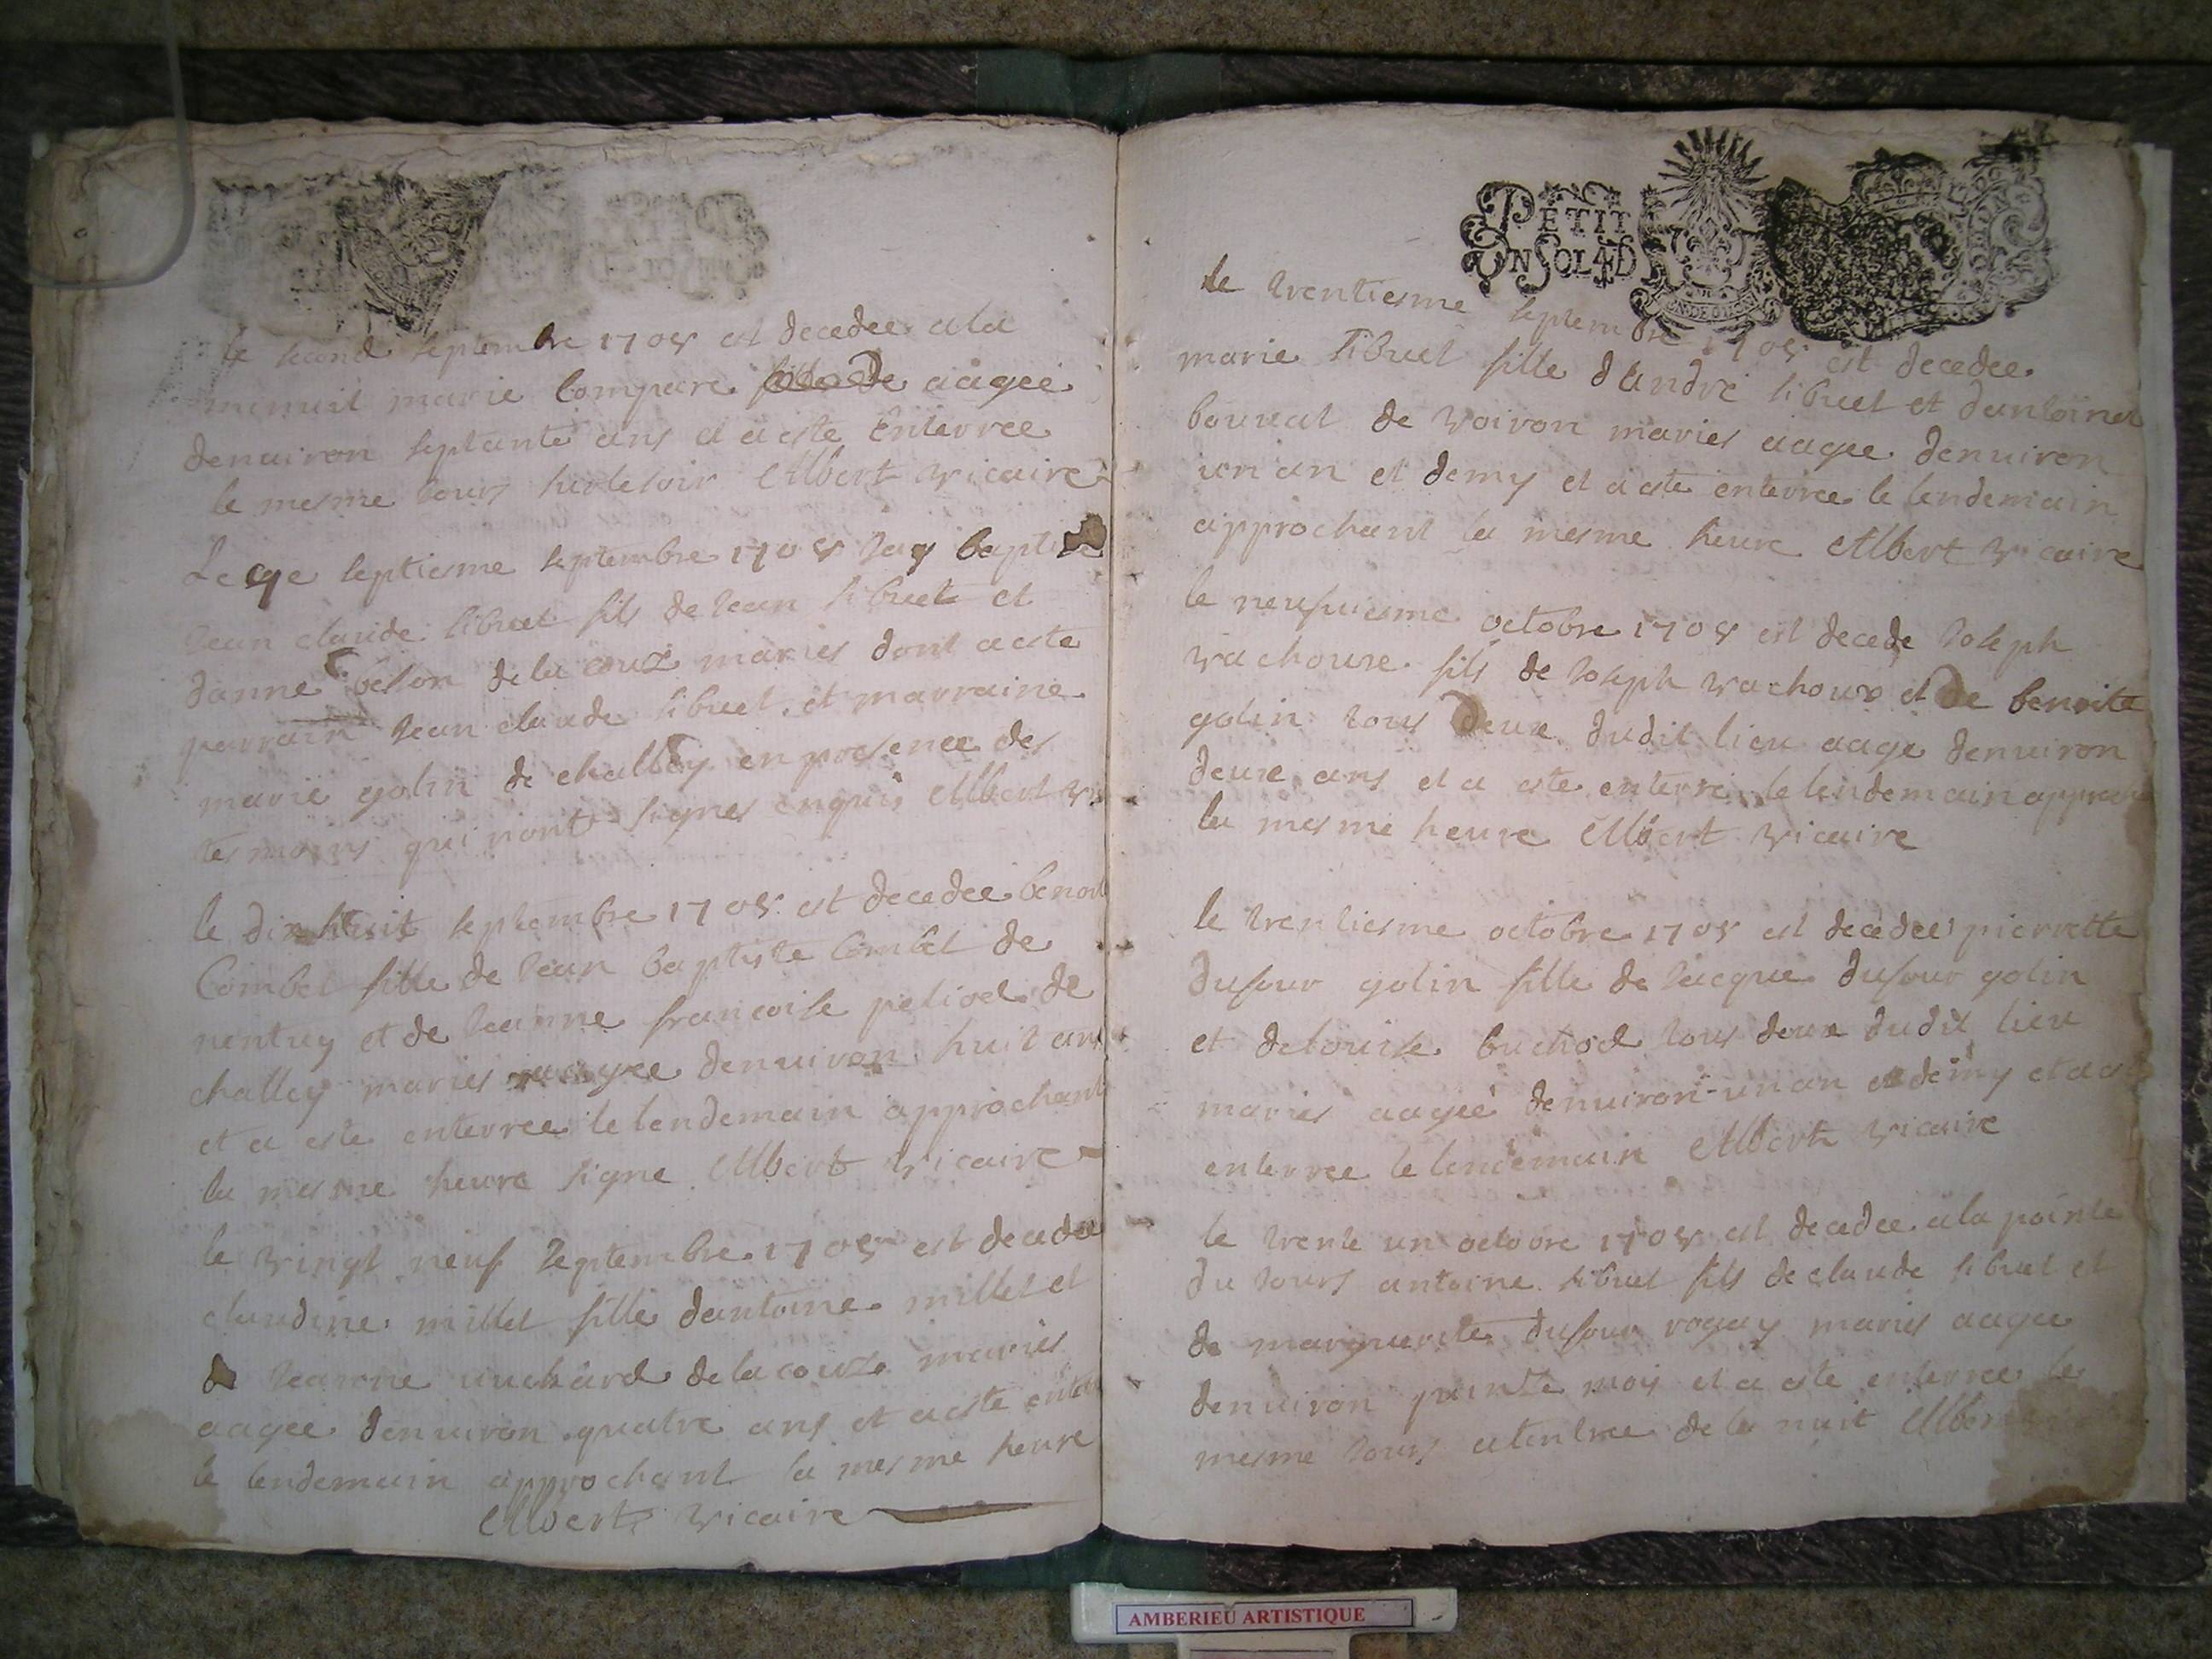 le second septembre 1705 est decedee a la
minuit marie Compare aagee
denuiron septante ans et a este enterree
le mesme Jours sur le soir Albert vicaire
Le septiesme septembre 1705 Jay baptise
Jean claude sibuet fils de Jean sibuet et
danne beson de la couz maries dont a este
parrain Jean claude sibuet et marraine
marie golin de challey en presence des
tesmoins qui nont signes enquis Albert vi
le dixhuit septembre 1705 est decedee benoit
Combet fille de Jean baptiste Combet de
nentuy et de Jeanne francoise petiod de
challey maries aagee denuiron huit ans
et a este enterree le lendemain approchant
la mesme heure signe Albert vicaire
le vingt neuf septembre 1705 est decedee
claudine millet fille dantoine millet et
Jeanne de la couz maries
aagee denuiron quatre ans et a este enter
le lendemain approchant la mesme heure
Albert vicaire
PETIT
UN SOL 4 D
le trentiesme septembre 1705 est decedee
marie sibuet fille dandre sibuet et dantoinet
bouuat de voiron maries aagee denuiron
un an et demy et a este enterree le lendemain
approchant la mesme heure Albert vicaire
le neufuiesme octobre 1705 est decede Joseph
vachoux fils de Joseph vachoux et de benoite
golin tous deux dudit lieu aage denuiron
deux ans et a este enterre le lendemain approch
la mesme heure Albert vicaire
le trentiesme octobre 1705 est decedee pierrette
dufour golin fille de Jacque dufour golin
et de louise buchod tous deux dudit lieu
maries aagee denuiron un an et demy et a est
enterree le lendemain Albert vicaire
le trente un octobre 1705 est decedee a la pointe
du Jours antoine sibuet fils de claude sibuet et
de marguerite dufour rogay maries aagee
denuiron quinze mois et a este enterree le
mesme Jours a lentree de la nuit Albert
AMBERIEU ARTISTIQUE